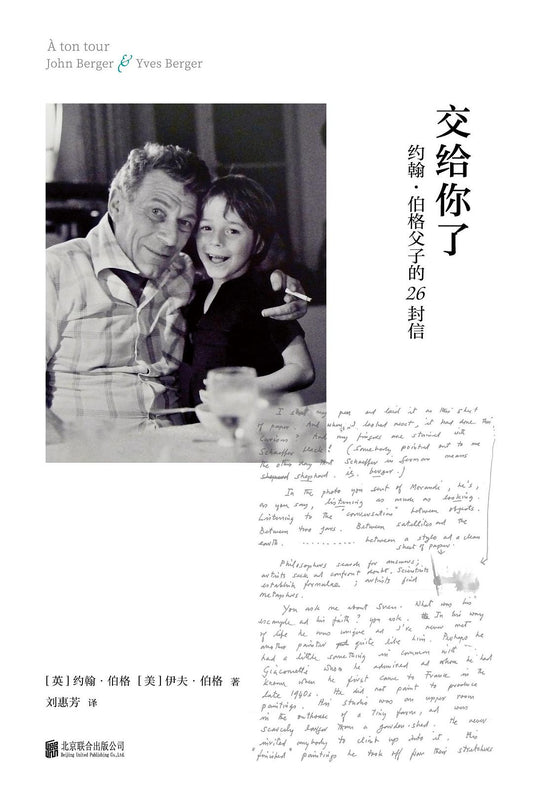 À ton tour
John Berger & Yves Berger
交给你了
约翰·伯格父子的26封信
I shut my pen and laid it on this sheet
of paper. And when I looked next, it had done this
Curious? And my fingers are stained with
Schaeffer black! (Somebody pointed out to me
the other day that Schaeffer in German means
shepherd. i.e. berger.)
In the photo you sent of Morandi, he's,
as you say, listening as much as looking.
Listening to the "conversation" between objects.
Between two jars. Between satellites and the
earth. between a stylo and a clean
sheet of paper.
Philosophers search for answers;
artists seek and confront doubt. Scientists
establish formulae; artists find
metaphors.
You ask me about Sven. What was his
example and his faith? you ask. In his way
of life he was unique and I've never met
another painter quite like him. Perhaps he
had a little something in common with
Giacometti whom he admired and whom he had
known when he first came to France in the
late 1940s. He did not paint to produce
paintings. His studio was an upper room
in the outhouse of a tiny farm, and was
scarcely larger than a garden-shed. He never
invited anybody to climb up into it. This
"finished" paintings he took off from their stretchers
[英]约翰·伯格 [美]伊夫·伯格 著
刘惠芳 译
北京联合出版公司
Beijing United Publishing Co.,Ltd.